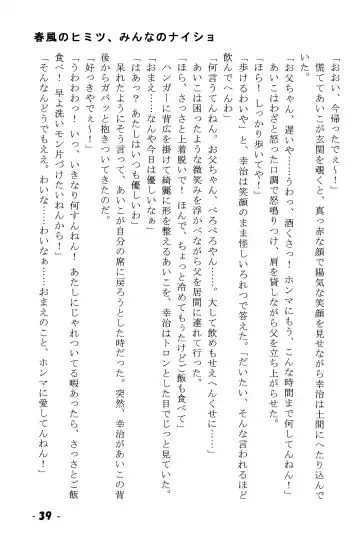 春風のヒミツ、みんなのナイショ
「おおい、今帰ったでぇ～！」
慌ててあいこが玄関を覗くと、真っ赤な顔で陽気な笑顔を見せながら幸治は土間にへたり込んで
いた。
「お父ちゃん、遅いや…うわっ、酒くさっ！ホンマにもう、こんな時間まで何してんねん！」
あいこはわざと怒った口調で怒鳴りつけ、肩を貸しながら父を立ち上がらせた。
「ほら！しっかり歩いてや！」
「歩けるわいや」と、幸治は笑顔のまま怪しいろれつで答えた。「だいたい、そんな言われるほど
飲んでへんわ」
「何言うてんねん。お父ちゃん、べろべろやん……。大して飲みもせえへんくせに……」
あいこは困ったような微笑みを浮かべながら父を居間に連れて行った。
「ほら、さっさと上着脱いで！ほんで、ちょっと冷めてもうたけどご飯も食べて」
ハンガーに背広を掛けて綺麗に形を整えるあいこを、幸治はトロンとした目でじっと見ていた。
「おまえ……なんや今日は優しいなぁ」
「はぁっ？あたしはいつも優しいわ」
呆れたようにそう言って、あいこが自分の席に戻ろうとした時だった。突然、幸治があいこの背
後からガバッと抱きついてきたのだ。
「好っきやでぇ～！」
「うわわわっ、いきなり何すんねん！あたしにじゃれついてる暇あったら、さっさとご飯
食べ！早よ洗いモン片づけたいねんから！」
「そんなんどうでもええ。わいな……わいなぁ……おまえのこと、ホンマに愛してんねん！」
- 39 -